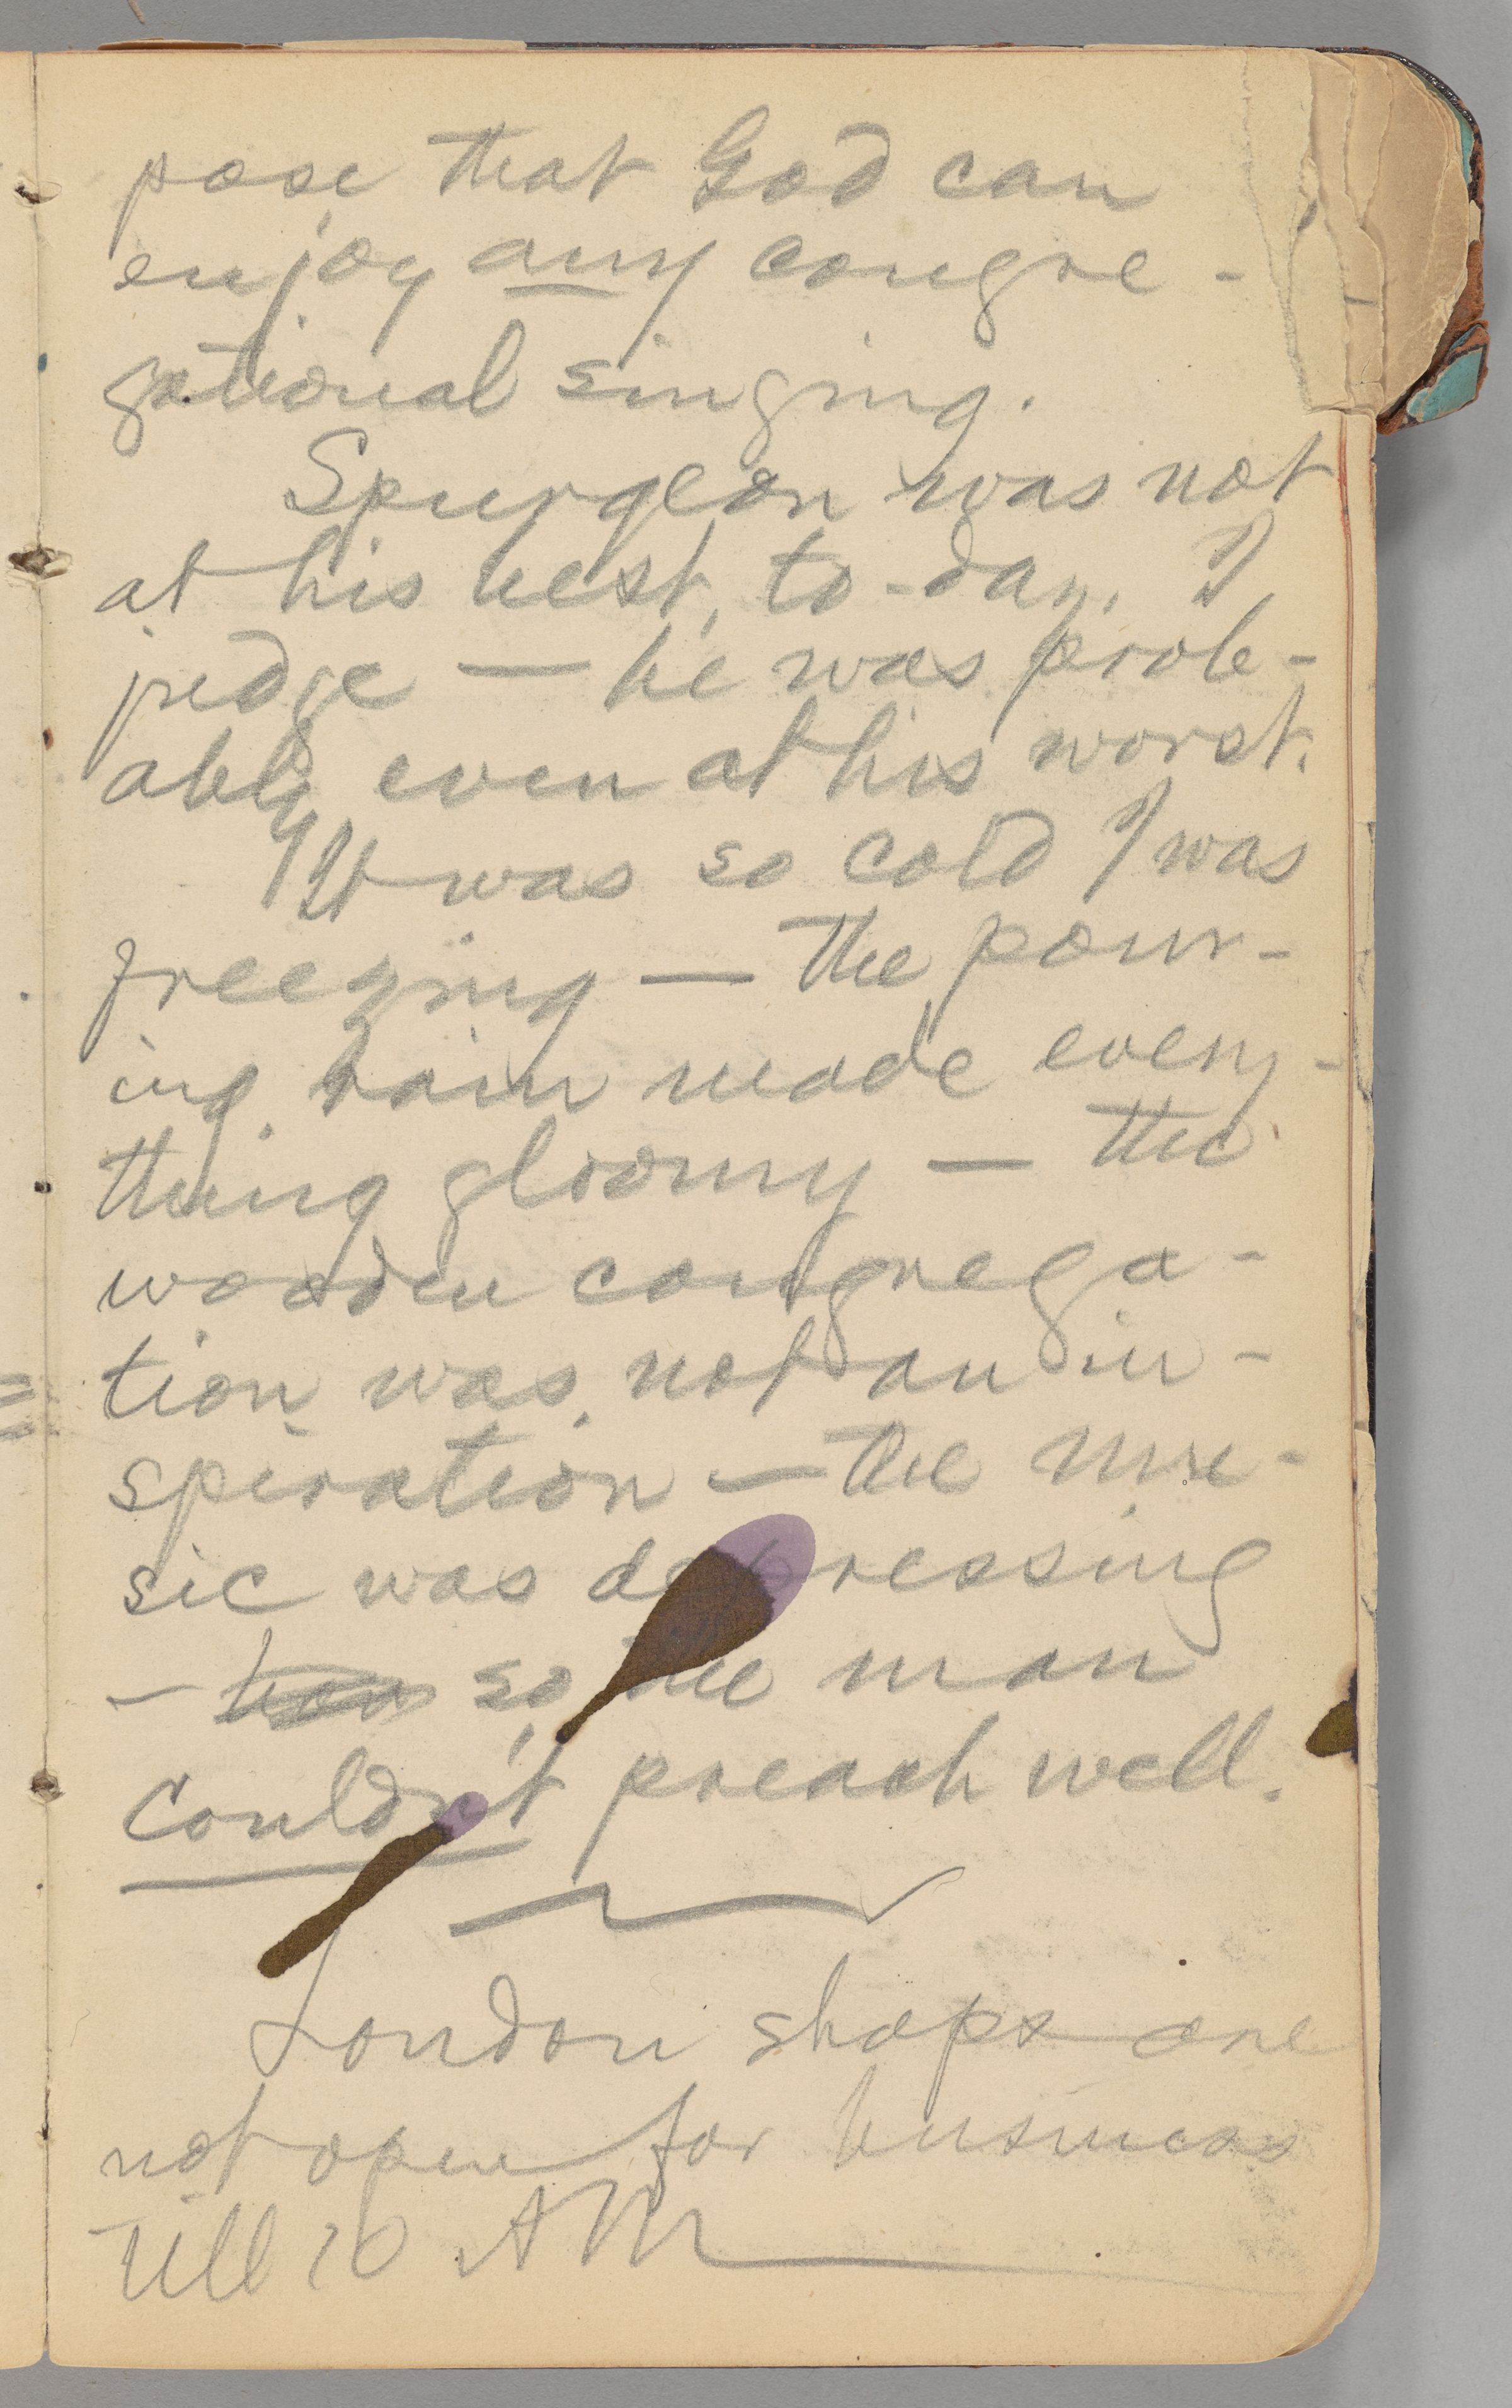 pose that God can
enjoy any congre-
gational singing.
Spurgeon was not
at his best, to-day, I
judge — he was prob-
ably even at his worst.
It was so cold I was
freezing — the pour-
ing rain made every-
thing gloomy — the
wooden congrega-
tion was not an in-
spiration — the mu-
sic was depressing
— so the man
couldn't preach well.
London shops are
not open for business
till 10 AM